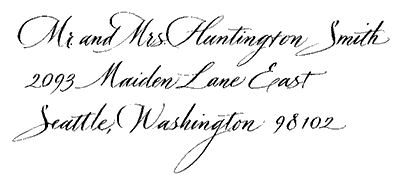 Mr. and Mrs. Huntington Smith
2093 Maiden Lane East
Seattle, Washington 98102